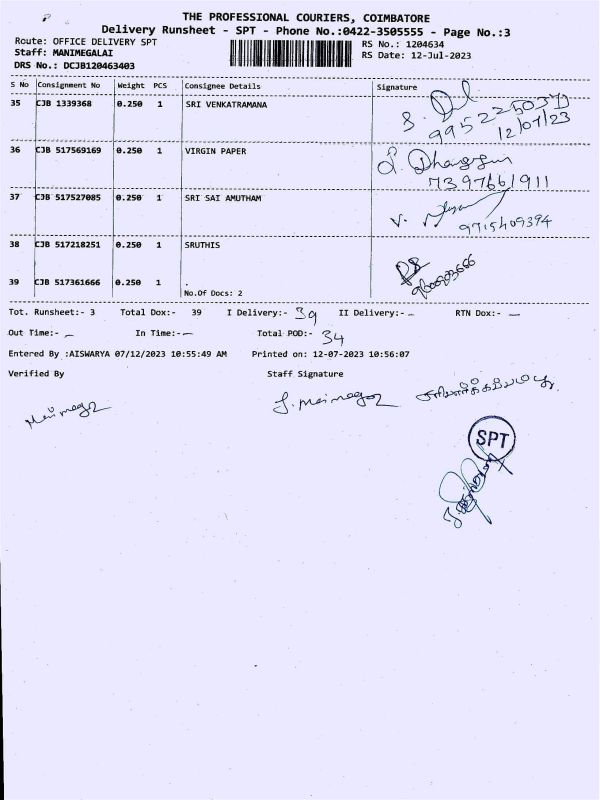 THE PROFESSIONAL COURIERS, COIMBATORE
Delivery Runsheet - SPT - Phone No.:0422-3505555 - Page No.:3
Route: OFFICE DELIVERY SPT
Staff: MANIMEGALAI
DRS No.: DCJB120463403
RS No.: 1204634
RS Date: 12-Jul-2023
S No Consignment No Weight PCS Consignee Details Signature
35 CJB 1339368 0.250 1 SRI VENKATRAMANA
12/07/23
36 CJB 517569169 0.250 1 VIRGIN PAPER
7397661911
37 CJB 517527085 0.250 1 SRI SAI AMUTHAM
9715409394
38 CJB 517218251 0.250 1 SRUTHIS
39 CJB 517361666 0.250 1 .
No.Of Docs: 2
Tot. Runsheet:- 3 Total Dox:- 39 I Delivery:- 39 II Delivery:- - RTN Dox:- -
Out Time:- - In Time:- - Total POD:- 34
Entered By :AISWARYA 07/12/2023 10:55:49 AM Printed on: 12-07-2023 10:56:07
Verified By Staff Signature
SPT